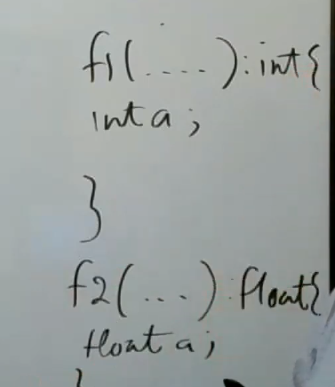 f1(....):int{
int a;
}
f2(...):float{
float a;
}